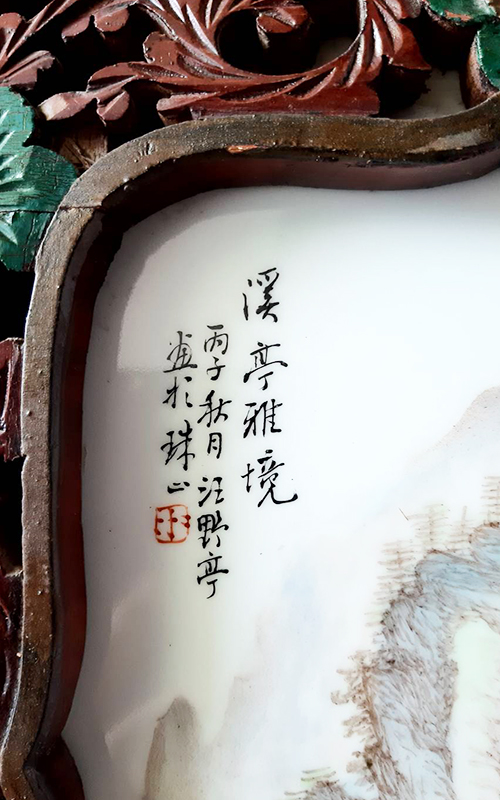 溪亭雅境
丙子秋月汪野亭
画於珠山